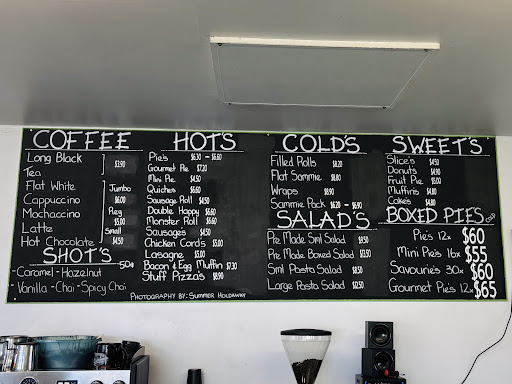 COFFEE
Long Black
Tea
$3.90
Flat White
Cappuccino
Mochaccino
Latte
Hot Chocolate
Jumbo
$6.00
Reg
$5.00
Small
$4.50
SHOT'S 50¢
-Caramel-Hazelnut
-Vanilla -Chai-Spicy Chai
HOT'S
Pie's $6.30 - $6.60
Gourmet Pie $7.20
Mini Pie $4.50
Quiches $6.60
Sausage Roll $4.50
Double Happy $6.60
Monster Roll $6.60
Sausage's $4.50
Chicken Cord's $5.00
Lasagne $5.00
Bacon & Egg Muffin $7.30
Stuff Pizza's $8.90
PHOTOGRAPHY BY: SUMMER HOLDAWAY
COLD'S
Filled Rolls $8.20
Flat Sammie $8.80
Wraps $8.90
Sammie Pack $6.20 - $6.90
SALAD'S
Pre Made Sml Salad $9.50
Pre Made Boxed Salad $13.50
Sml Pasta Salad $8.50
Large Pasta Salad $12.50
SWEET'S
Slice's $4.50
Donuts $4.90
Fruit Pie $5.00
Muffin's $4.80
Cake's $4.80
BOXED PIES
Pie's 12x $60
Mini Pie's 16x $55
Savourie's 30x $60
Gourmet Pie's 12x $65